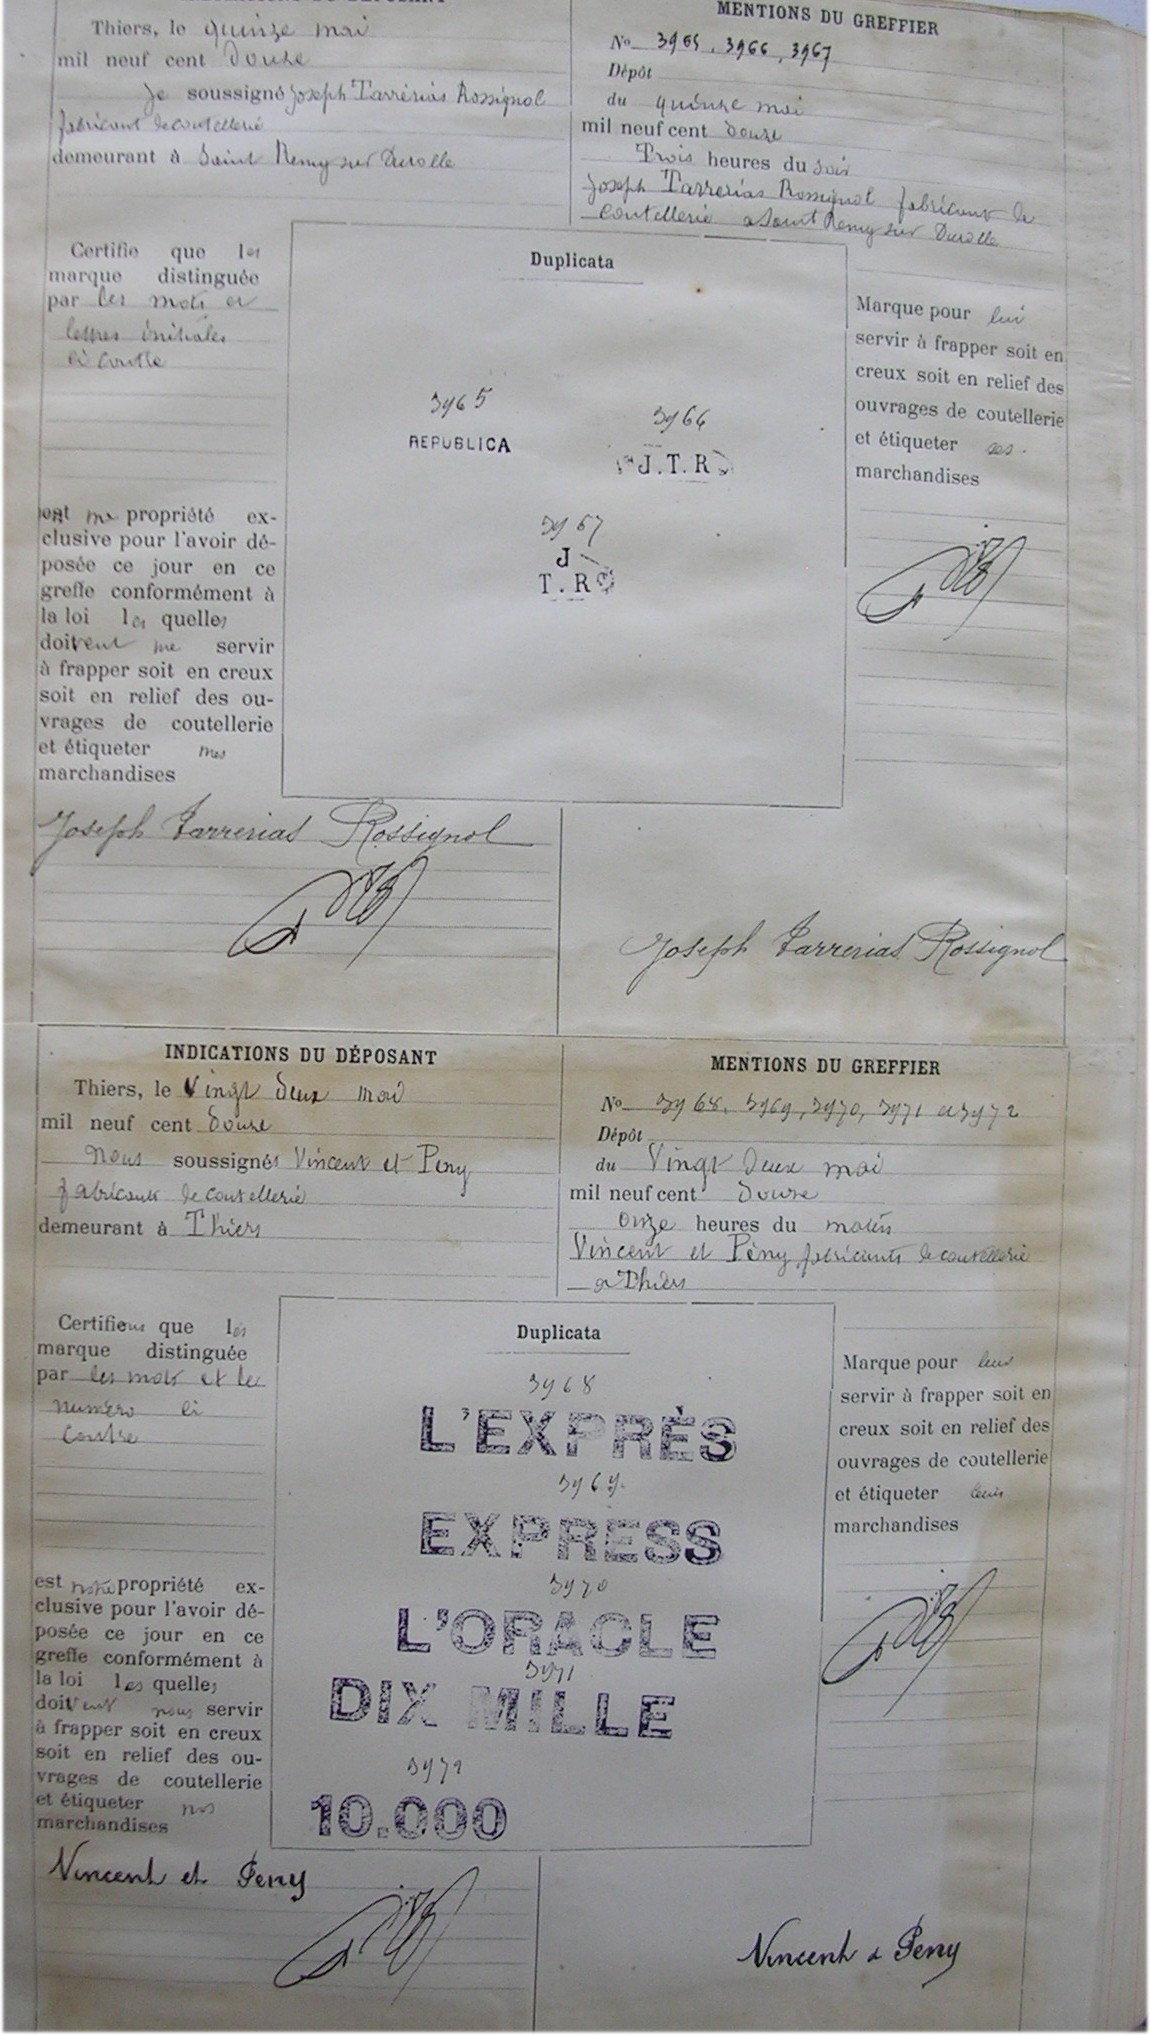 INDICATIONS DU DÉPOSANT
Thiers, le quinze mai
mil neuf cent Douze
Je soussigné Joseph Tarrerias Rossignol
fabricant de coutellerie
demeurant à Saint Remy sur Durolle
MENTIONS DU GREFFIER
No 3965, 3966, 3967
Dépôt
du quinze mai
mil neuf cent douze
Trois heures du soir
Joseph Tarrerias Rossignol fabricant de
coutellerie a Saint Remy sur Durolle
Certifie que les
marque distinguée
par les mots et
lettres initiales
ci contre
est ma propriété ex-
clusive pour l'avoir dé-
posée ce jour en ce
greffe conformément à
la loi les quelles
doivent me servir
à frapper soit en creux
soit en relief des ou-
vrages de coutellerie
et étiqueter mes
marchandises
Duplicata
3965
REPUBLICA
3966
J.T.R
3967
J
T.R
Marque pour lui
servir à frapper soit en
creux soit en relief des
ouvrages de coutellerie
et étiqueter ses
marchandises
Joseph Tarrerias Rossignol
Joseph Tarrerias Rossignol
INDICATIONS DU DÉPOSANT
Thiers, le Vingt deux mai
mil neuf cent douze
Nous soussignés Vincent et Peny
fabricants de coutellerie
demeurant à Thiers
MENTIONS DU GREFFIER
No 3968, 3969, 3970, 3971 et 3972
Dépôt
du Vingt deux mai
mil neuf cent douze
onze heures du matin
Vincent et Pény fabricants de coutellerie
a Thiers
Certifions que les
marque distinguée
par les mots et le
numéro ci
contre
est notre propriété ex-
clusive pour l'avoir dé-
posée ce jour en ce
greffe conformément à
la loi les quelles
doivent nous servir
à frapper soit en creux
soit en relief des ou-
vrages de coutellerie
et étiqueter nos
marchandises
Duplicata
3968
L'EXPRÈS
3969
EXPRESS
3970
L'ORACLE
3971
DIX MILLE
3972
10.000
Marque pour leur
servir à frapper soit en
creux soit en relief des
ouvrages de coutellerie
et étiqueter leurs
marchandises
Vincent et Peny
Vincent & Peny